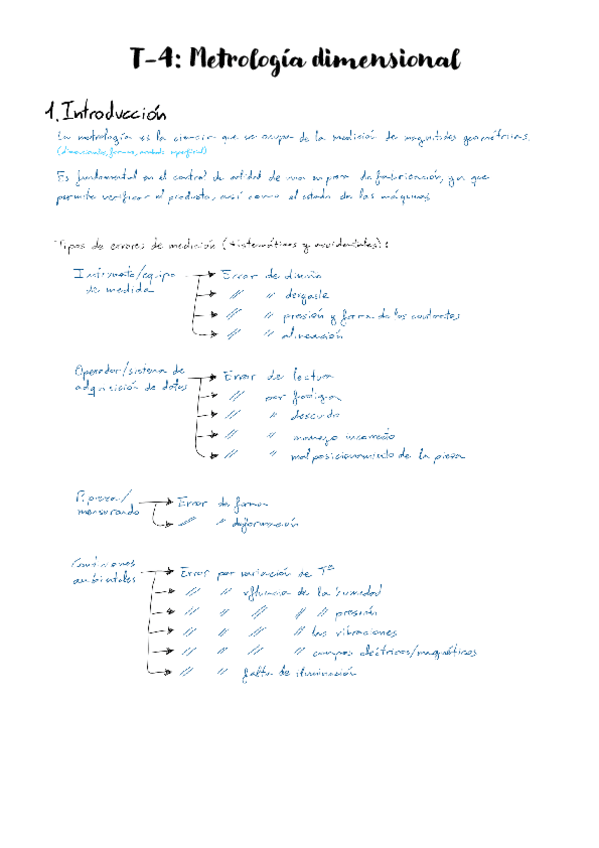 T-4: Metrología dimensional
1. Introducción
La metrología es la ciencia que se ocupa de la medición de magnitudes geométricas.
(dimensionales, formas, acabado superficial)
Es fundamental en el control de calidad de una empresa de fabricación, ya que
permite verificar el producto, así como el estado de las máquinas
Tipos de errores de medición (sistemáticos y accidentales):
Instrumento/equipo de medida → Error de diseño
→ // // desgaste
→ // // presión y forma de los contactos
→ // // alineación
Operador/sistema de adquisición de datos → Error de lectura
→ // por fatiga
→ // // descuido
→ // // manejo incorrecto
→ // // mal posicionamiento de la pieza
Pieza/mensurando → Error de forma
→ // // deformación
Condiciones ambientales → Error por variación de Tª
→ // // influencia de la humedad
→ // // // // // presión
→ // // // // las vibraciones
→ // // // // campos eléctricos/magnéticos
→ // // falta de iluminación